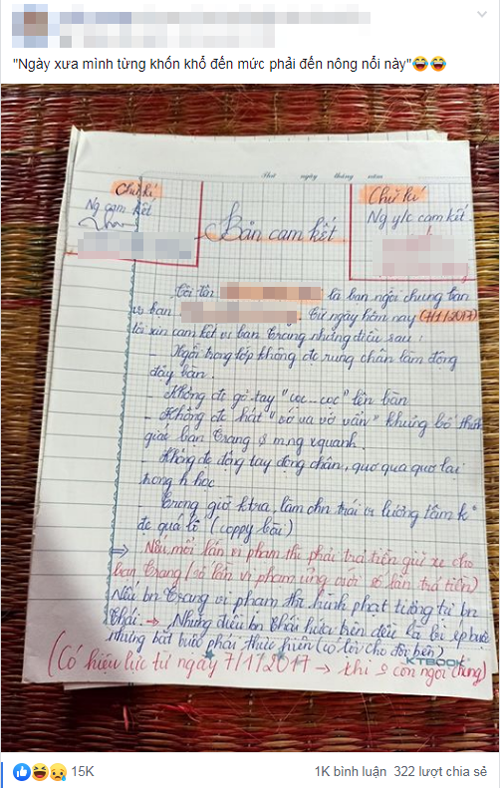 "Ngày xưa mình từng khốn khổ đến mức phải đến nông nổi này"😂😂
Thứ ngày tháng năm
Chữ kí
Ng cam kết
Chữ kí
Ng y/c cam kết
Bản cam kết
Tôi tên là bạn ngồi chung bàn
vs bạn . Từ ngày hôm nay (7/1/2017)
tôi xin cam kết vs bạn Trang những điều sau :
- Ngồi trong lớp không đc rung chân làm động
đậy bàn.
- Không đc gõ tay "cọc - cọc" lên bàn
- Không đc hát "vớ va vớ vẩn" khủng bố thính
giác bạn Trang & mng xquanh.
- Không đc động tay động chân, quơ qua quơ lại
trong h học
- Trong giờ ktra, làm chn trái vs lương tâm k°
đc quá lố (coppy bài)
=> Nếu mỗi lần vi phạm thì phải trả tiền giữ xe cho
bạn Trang (số lần vi phạm ứng với số lần trả tiền)
Nếu bn Trang vi phạm thì hình phạt tương tự bn
Khải. → Những điều bn Khải hứa trên đều là bị ép buộc
nhưng bắt buộc phải thực hiện (có lợi cho đôi bên)
KTBOOK
(Có hiệu lực từ ngày 7/1/2017 → khi 2 còn ngồi chung)
15K 1K bình luận 322 lượt chia sẻ